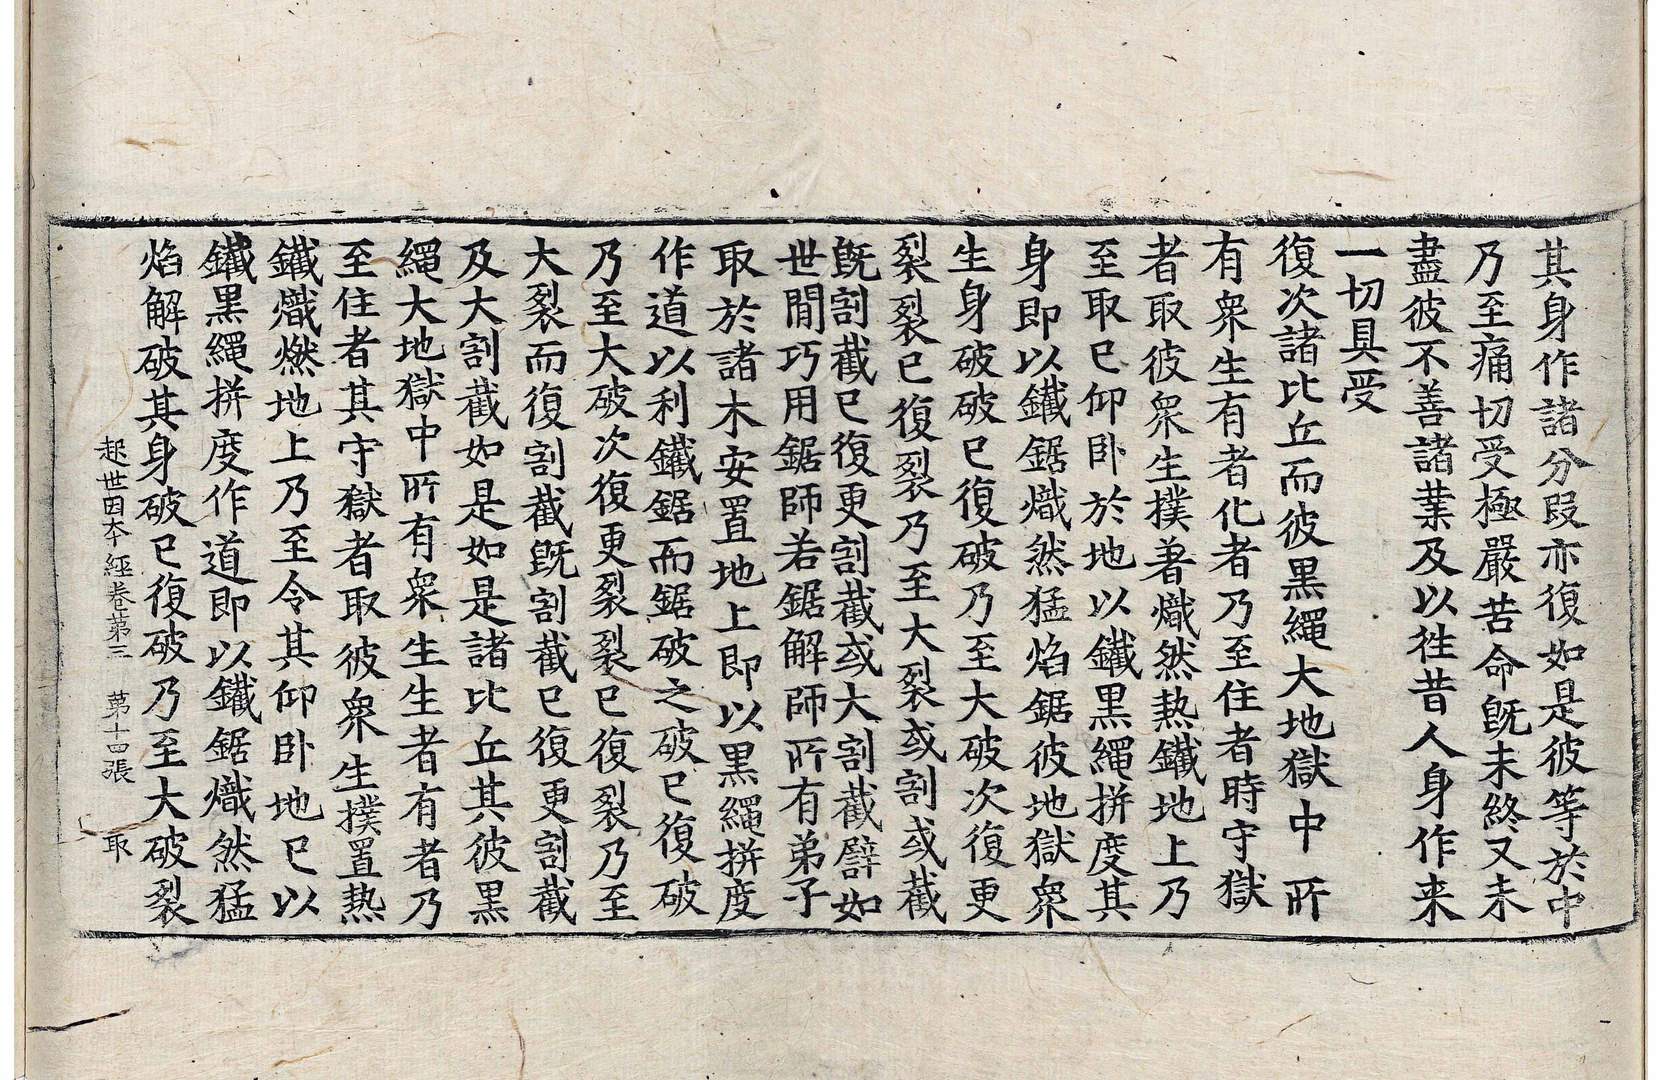 其身作諸分段亦復如是彼等於中
乃至痛切受極嚴苦命旣未終又未
盡彼不善諸業及以徃昔人身作来
一切具受
復次諸比丘而彼黒繩大地獄中所
有衆生有者化者乃至住者時守獄
者取彼衆生撲著熾然熱鐵地上乃
至取已仰卧於地以鐵黒繩拼度其
身即以鐵鋸熾然猛焰鋸彼地獄衆
生身破破已復破乃至大破次復更
裂裂已復裂乃至大裂或割或截
旣割截已復更割截或大割截譬如
世間巧用鋸師若鋸解師所有弟子
取於諸木安置地上即以黒繩拼度
作道以利鐵鋸而鋸破之破已復破
乃至大破次復更裂裂已復裂乃至
大裂而復割截旣割截已復更割截
及大割截如是如是諸比丘其彼黒
繩大地獄中所有衆生生者有者乃
至住者其守獄者取彼衆生撲置熱
鐵熾燃地上乃至令其仰卧地已以
鐵黒繩拼度作道即以鐵鋸熾然猛
焰解破其身破已復破乃至大破裂
起世因本經卷第三　第十四張　取